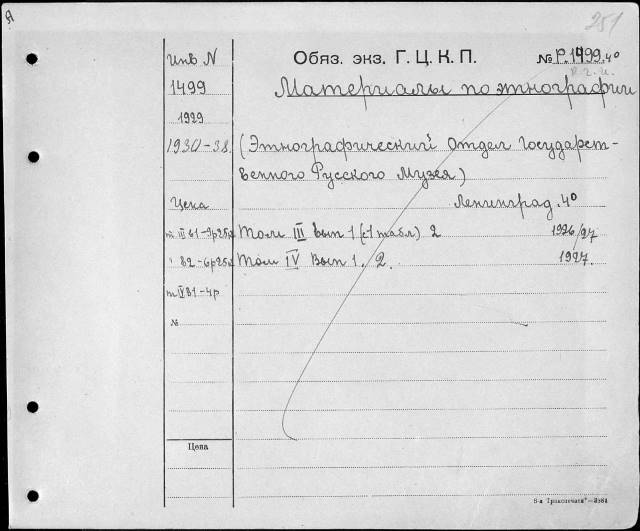 Я
251
Инв N Обяз. экз. Г. Ц. К. П. № Р.1499.4°
1499 Материалы по этнографии
1929
1930-38. (Этнографический отдел Государст-
венного Русского Музея)
Цена Ленинград. 4°
т III в1-9р25к Том III вып 1 (с 1 табл) 2 1926/27
" в2-6р25к Том IV Вып 1. 2. 1927.
т IV в1-4р
№
Цена
8-я Транспечати"—3384